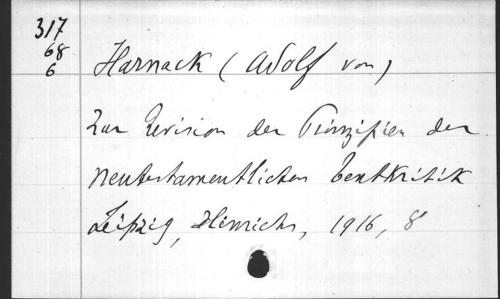 317
68
6
Harnack (Adolf von)
Zur Revision der Prinzipien der
neutestamentlichen Textkritik
Leipzig, Hinrichs, 1916, 8